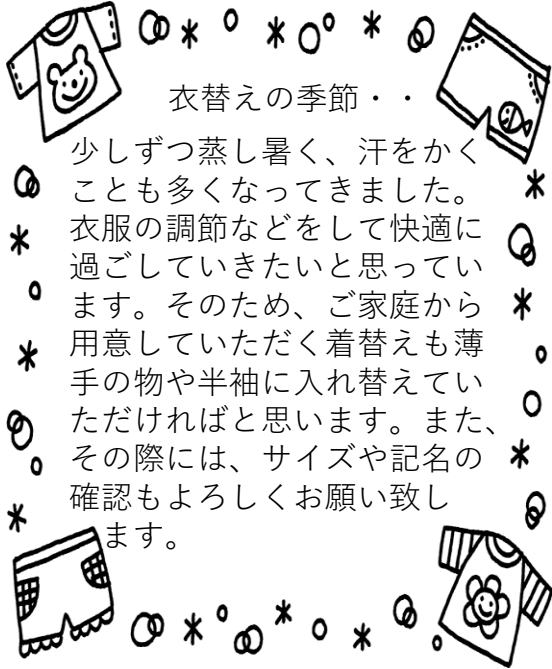 衣替えの季節・・
少しずつ蒸し暑く、汗をかく
ことも多くなってきました。
衣服の調節などをして快適に
過ごしていきたいと思ってい
ます。そのため、ご家庭から
用意していただく着替えも薄
手の物や半袖に入れ替えてい
ただければと思います。また、
その際には、サイズや記名の
確認もよろしくお願い致し
ます。